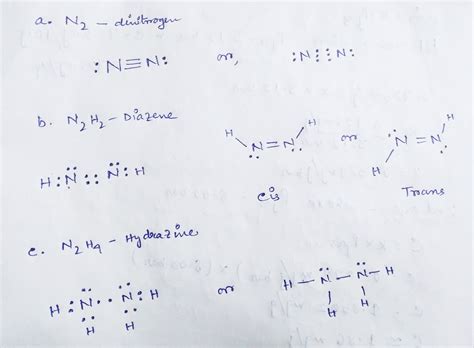 a. N2 – dinitrogen
:N≡N: or, :N⋮⋮N:
b. N2H2 – Diazene
H:N̈::N̈:H
H N=N H or H N=N H
cis Trans
c. N2H4 – Hydrazine
H:N̈:N̈:H or H–N̈–N̈–H
H H H H